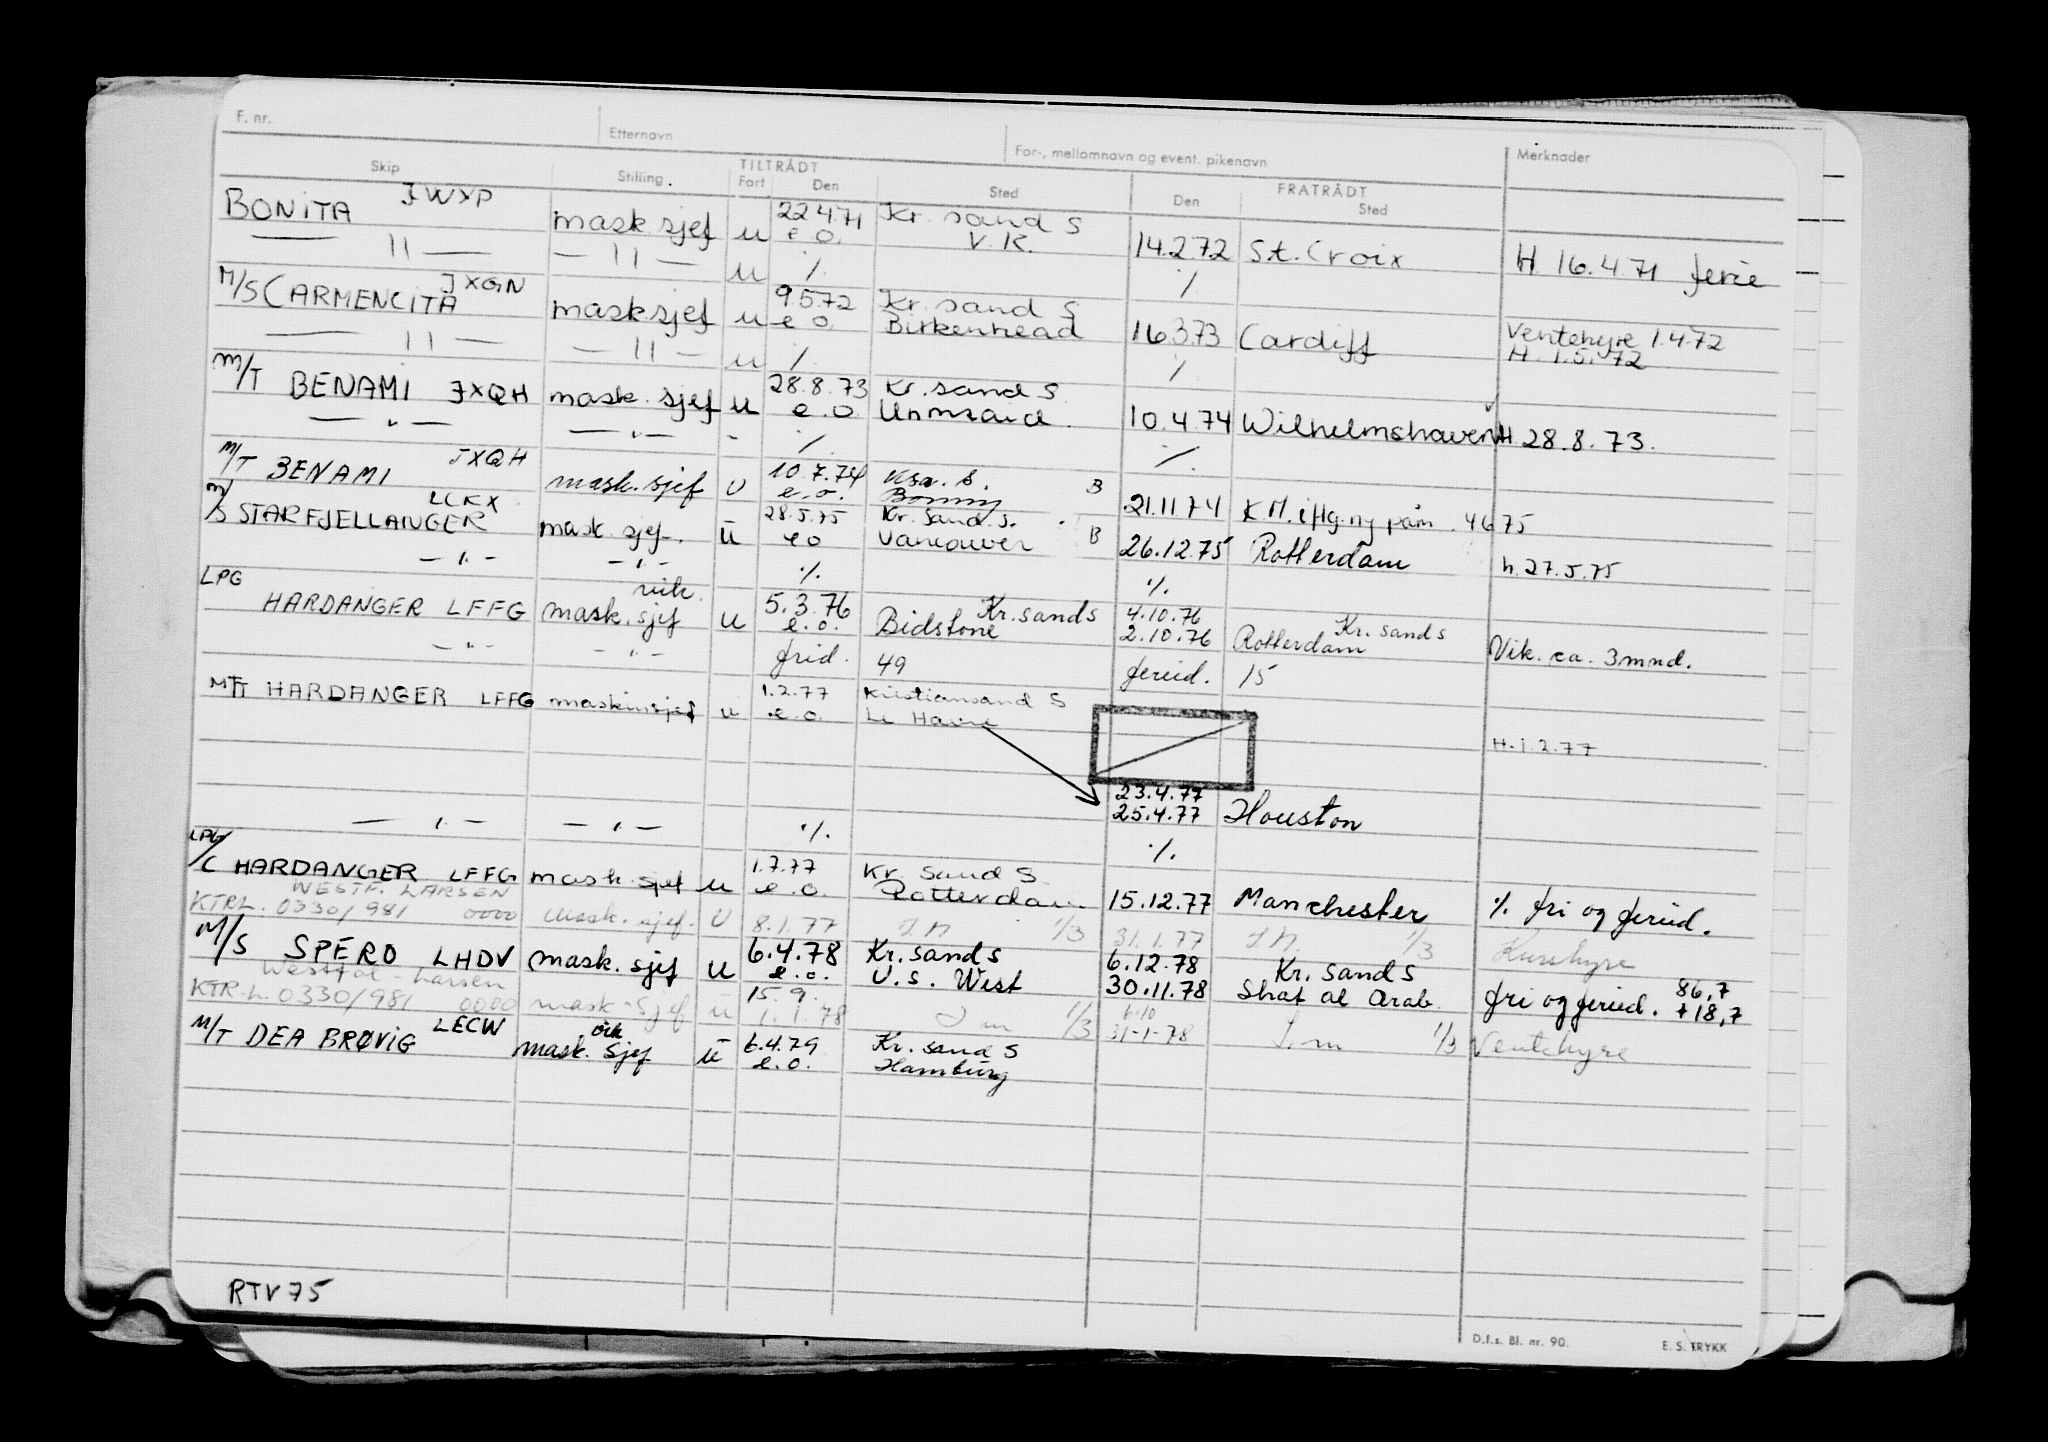 F. nr. Etternavn For-, mellomnavn og event. pikenavn Merknader
Skip Stilling TILTRÅDT FRATRÅDT
Fart Den Sted Den Sted
BONITA JWXP mask sjef u 22.4.71 Kr. sand S
e.o. V.K. 14.2.72 St. Croix H 16.4.71 ferie
— 11 — — 11 — u % %
M/S CARMENCITA JXGN mask sjef u 9.5.72 Kr. sand S
e o. Birkenhead 16.3.73 Cardiff Ventehyre 1.4.72
H. 1.5.72
— 11 — — 11 — u % %
M/T BENAMI JXQH mask. sjef u 28.8.73 Kr. sand S
e.o. 10.4.74 Wilhelmshaven H 28.8.73.
— " — — " — - % %
M/T BENAMI JXQH mask. sjef U 10.7.74 Ksa. S. B
e.o. Bonny 21.11.74 K M. iflg. ny påm. 4 6 75
M/S STARFJELLANGER LCKX mask. sjef. u 28.5.75 Kr. Sand. S. B
e o Vancouver 26.12.75 Rotterdam h. 27.5.75
— " — — " — % %
LPG HARDANGER LFFG vik. mask. sjef u 5.3.76 Kr. sand S 4.10.76 Kr. sand S
e.o. Bidstone 2.10.76 Rotterdam Vik. ca. 3 mnd.
— " — — " — frid. 49 feried. 15
M/T HARDANGER LFFG maskinsjef u 1.2.77 Kristiansand S
e.o. Le Havre H. 1.2.77
23.4.77
25.4.77 Houston
— " — — " — % %
LPG/C HARDANGER LFFG mask. sjef u 1.7.77 Kr. Sand S
e.o. Rotterdam 15.12.77 Manchester % fri og feried.
WESTF. LARSEN
KTRL. 0330/981 0000 Mask. sjef. U 8.1.77 1/3 31.1.77 1/3 Kursehyre
M/S SPERO LHDV mask. sjef u 6.4.78 Kr. sand S 6.12.78 Kr. sand S
e.o. U.S. West 30.11.78 Shat al Arab. fri og feried. 86,7 + 18,7
Westfal-Larsen 15.9. 6.10
KTR.L. 0330/981 0000 mask. Sjef u 1.1.78 1/3 31-1-78 1/3 Ventehyre
M/T DEA BRØVIG LECW mask. sjef u 6.4.79 Kr. sand S
e.o. Hamburg
RTV 75
D.f.s. Bl. nr. 90. E. S. TRYKK